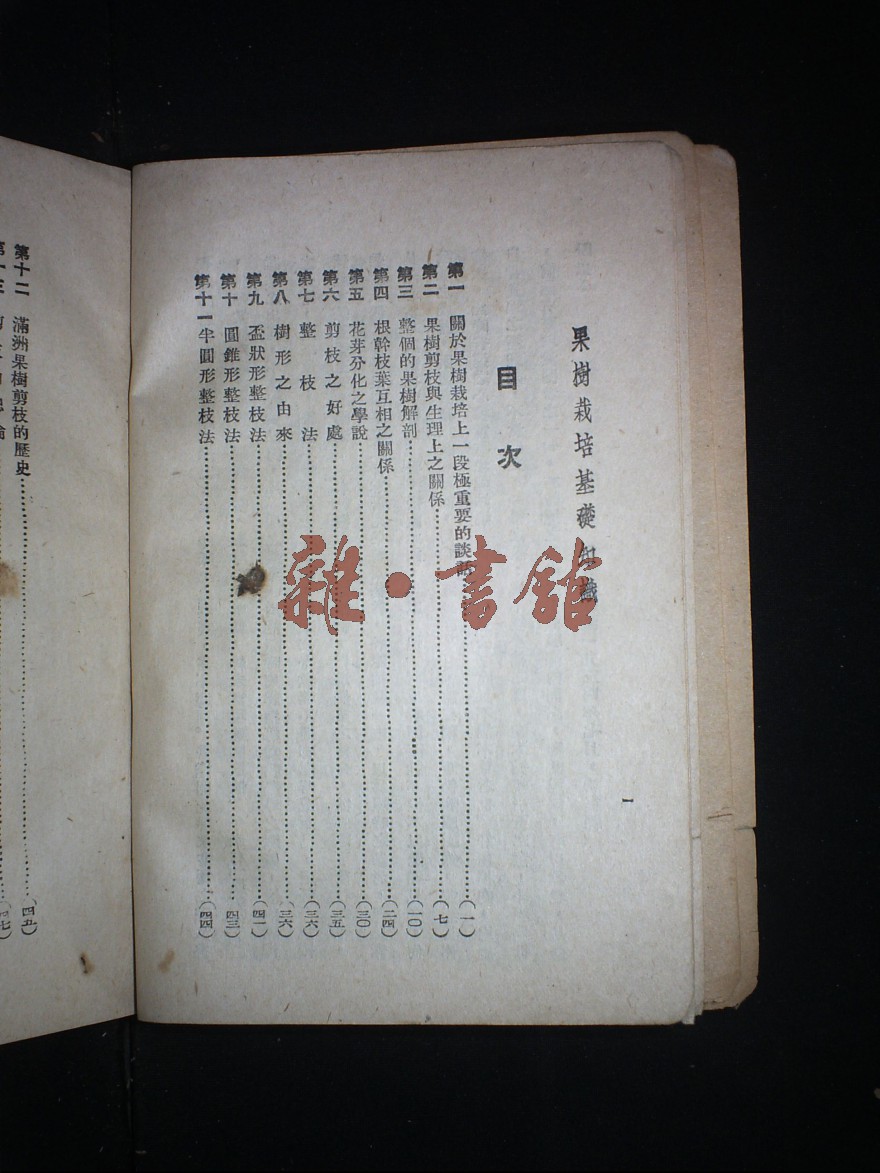 果樹栽培基礎知識
目次
第一 關於果樹栽培上一段極重要的談話……(一)
第二 果樹剪枝與生理上之關係……(七)
第三 整個的果樹解剖……(一〇)
第四 根幹枝葉互相之關係……(二四)
第五 花芽分化之學說……(三〇)
第六 剪枝之好處……(三五)
第七 整枝法……(三六)
第八 樹形之由來……(三六)
第九 盃狀形整枝法……(四一)
第十 圓錐形整枝法……(四三)
第十一 半圓形整枝法……(四四)
一
第十二 滿洲果樹剪枝的歷史……(四五)
雜·書館